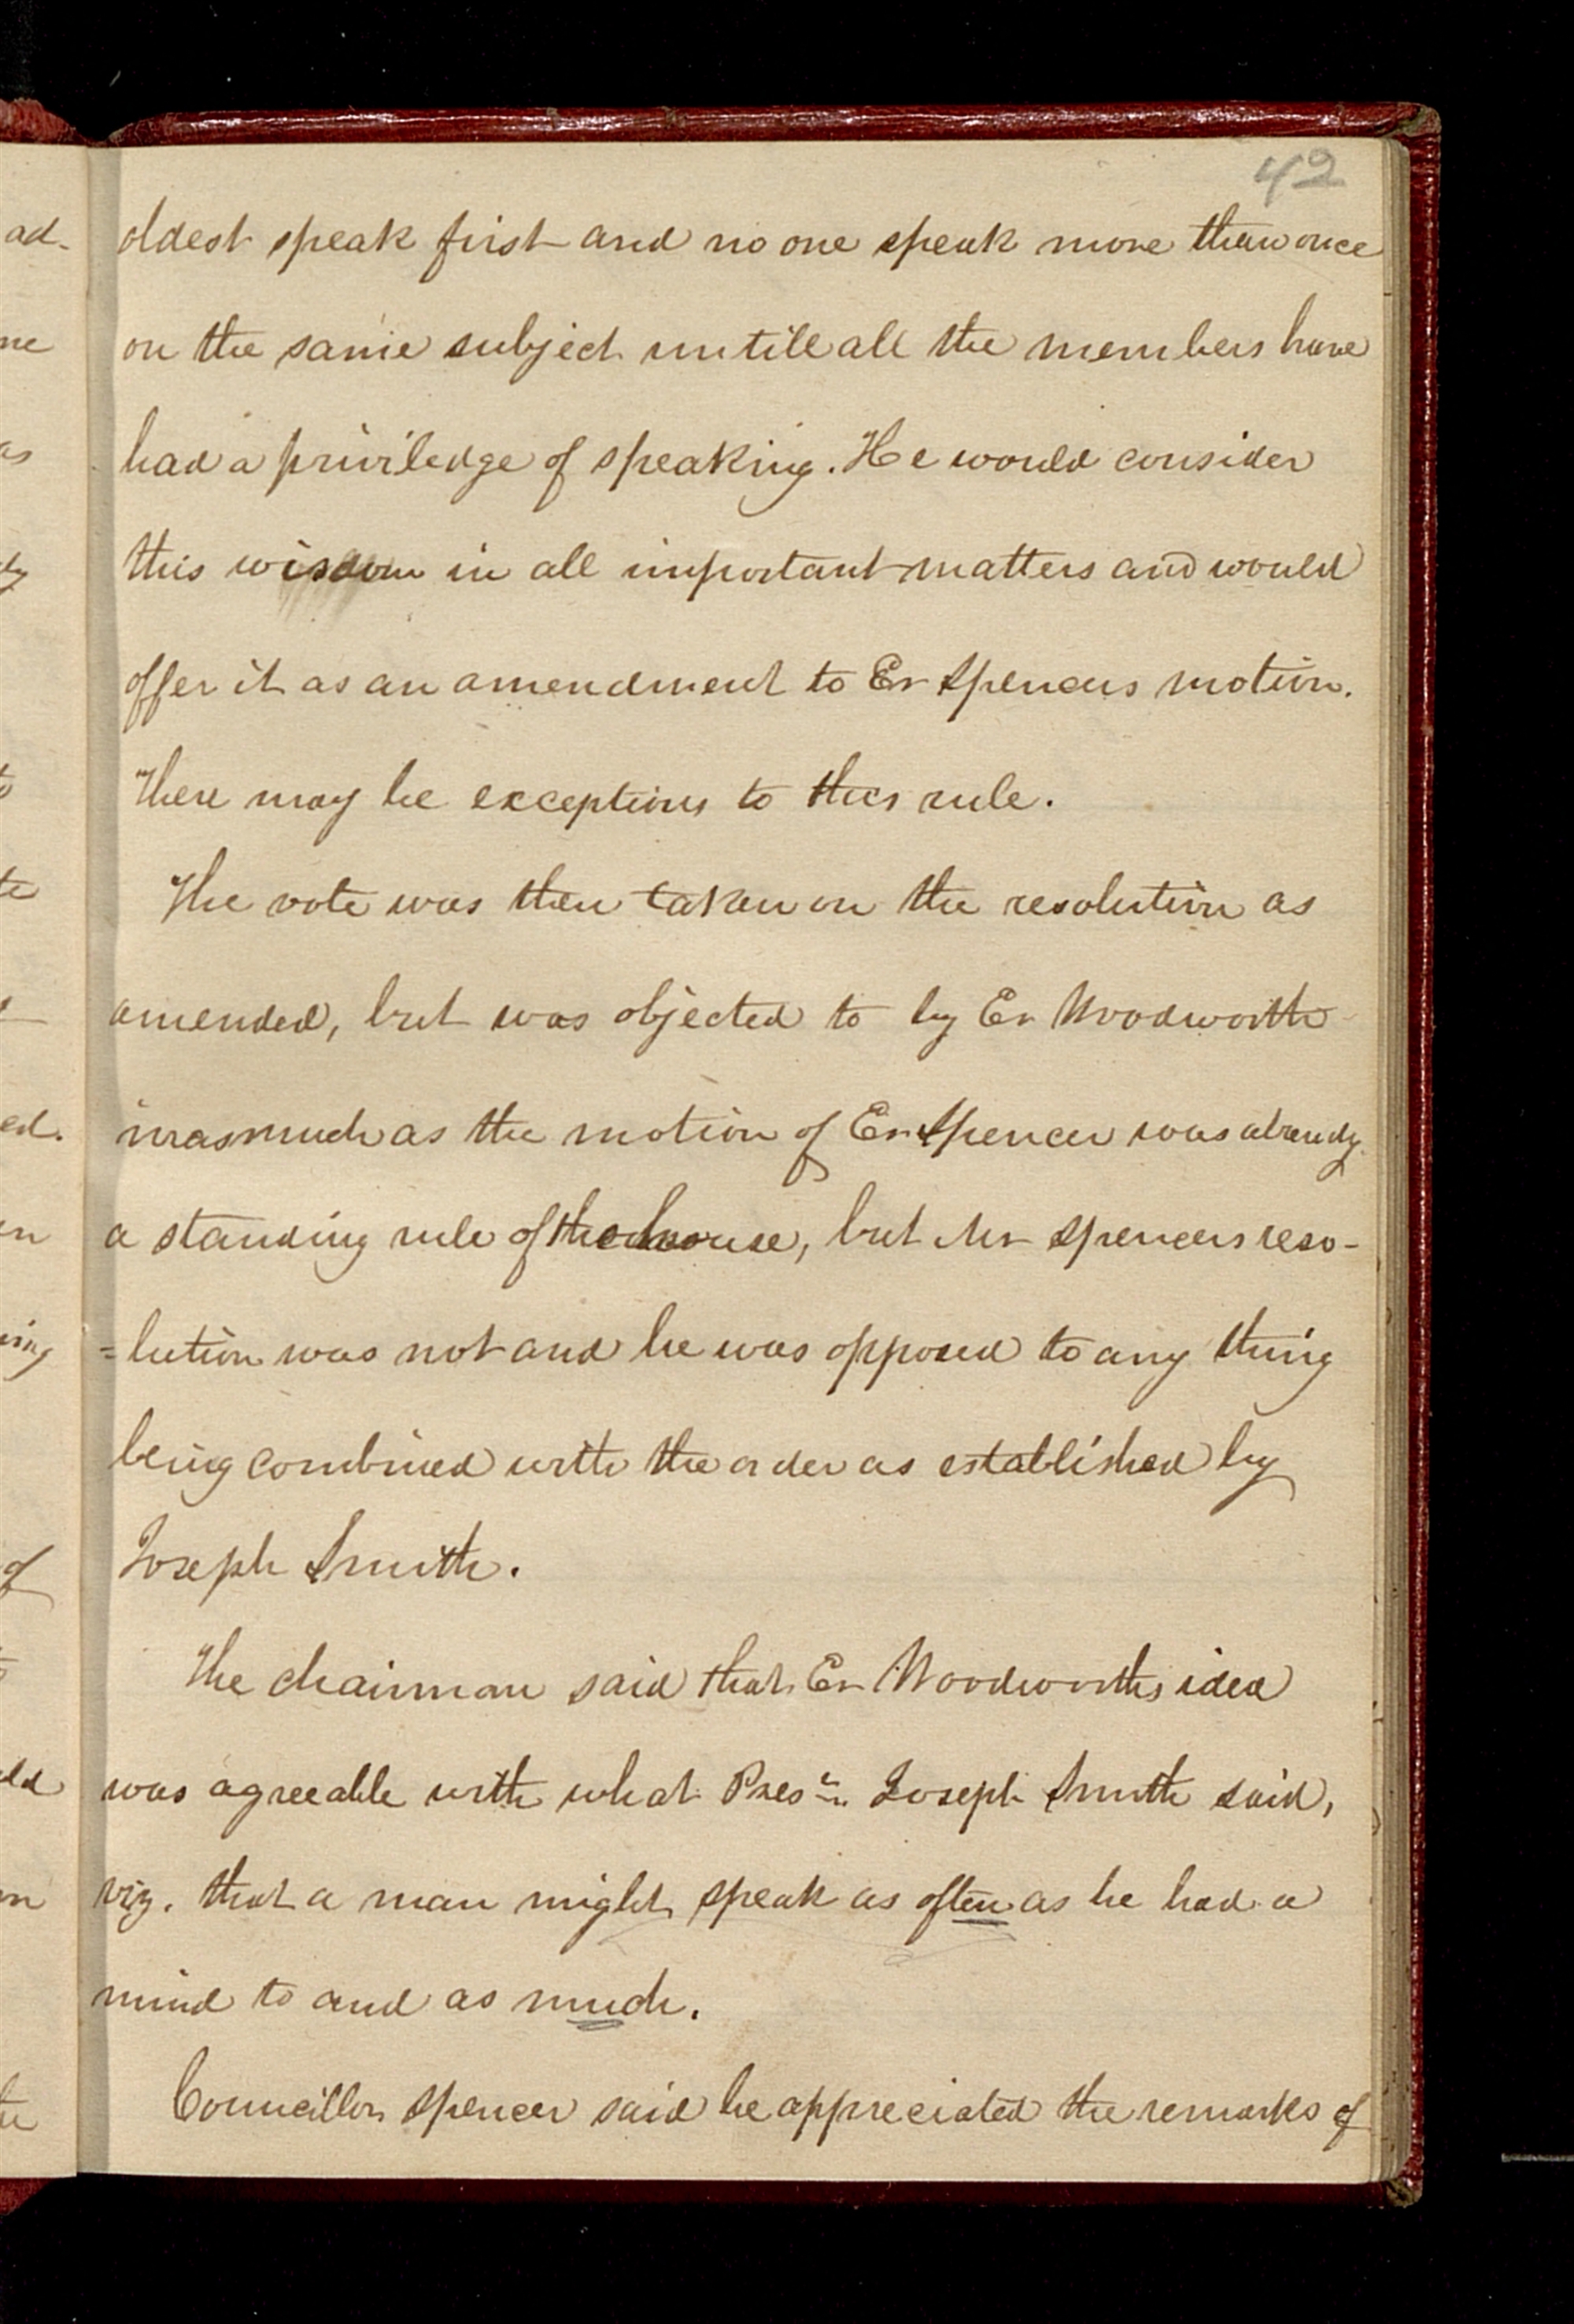 42
oldest speak first and no one speak more than once
on the same subject untill all the members have
had a priviledge of speaking. He would consider
this wisdom in all important matters and would
offer it as an amendment to Er Spencers motion.
There may be exceptions to this rule.
The vote was then taken on the resolution as
amended, but was objected to by Er Woodworth
inasmuch as the motion of Er Spencer was already
a standing rule of the house, but Mr Spencers reso-
=lution was not and he was opposed to any thing
being combined with the order as established by
Joseph Smith.
The chairman said that Er Woodworths idea
was agreeable with what Prest. Joseph Smith said,
viz. that a man might speak as often as he had a
mind to and as much.
Councillor Spencer said he appreciated the remarks of